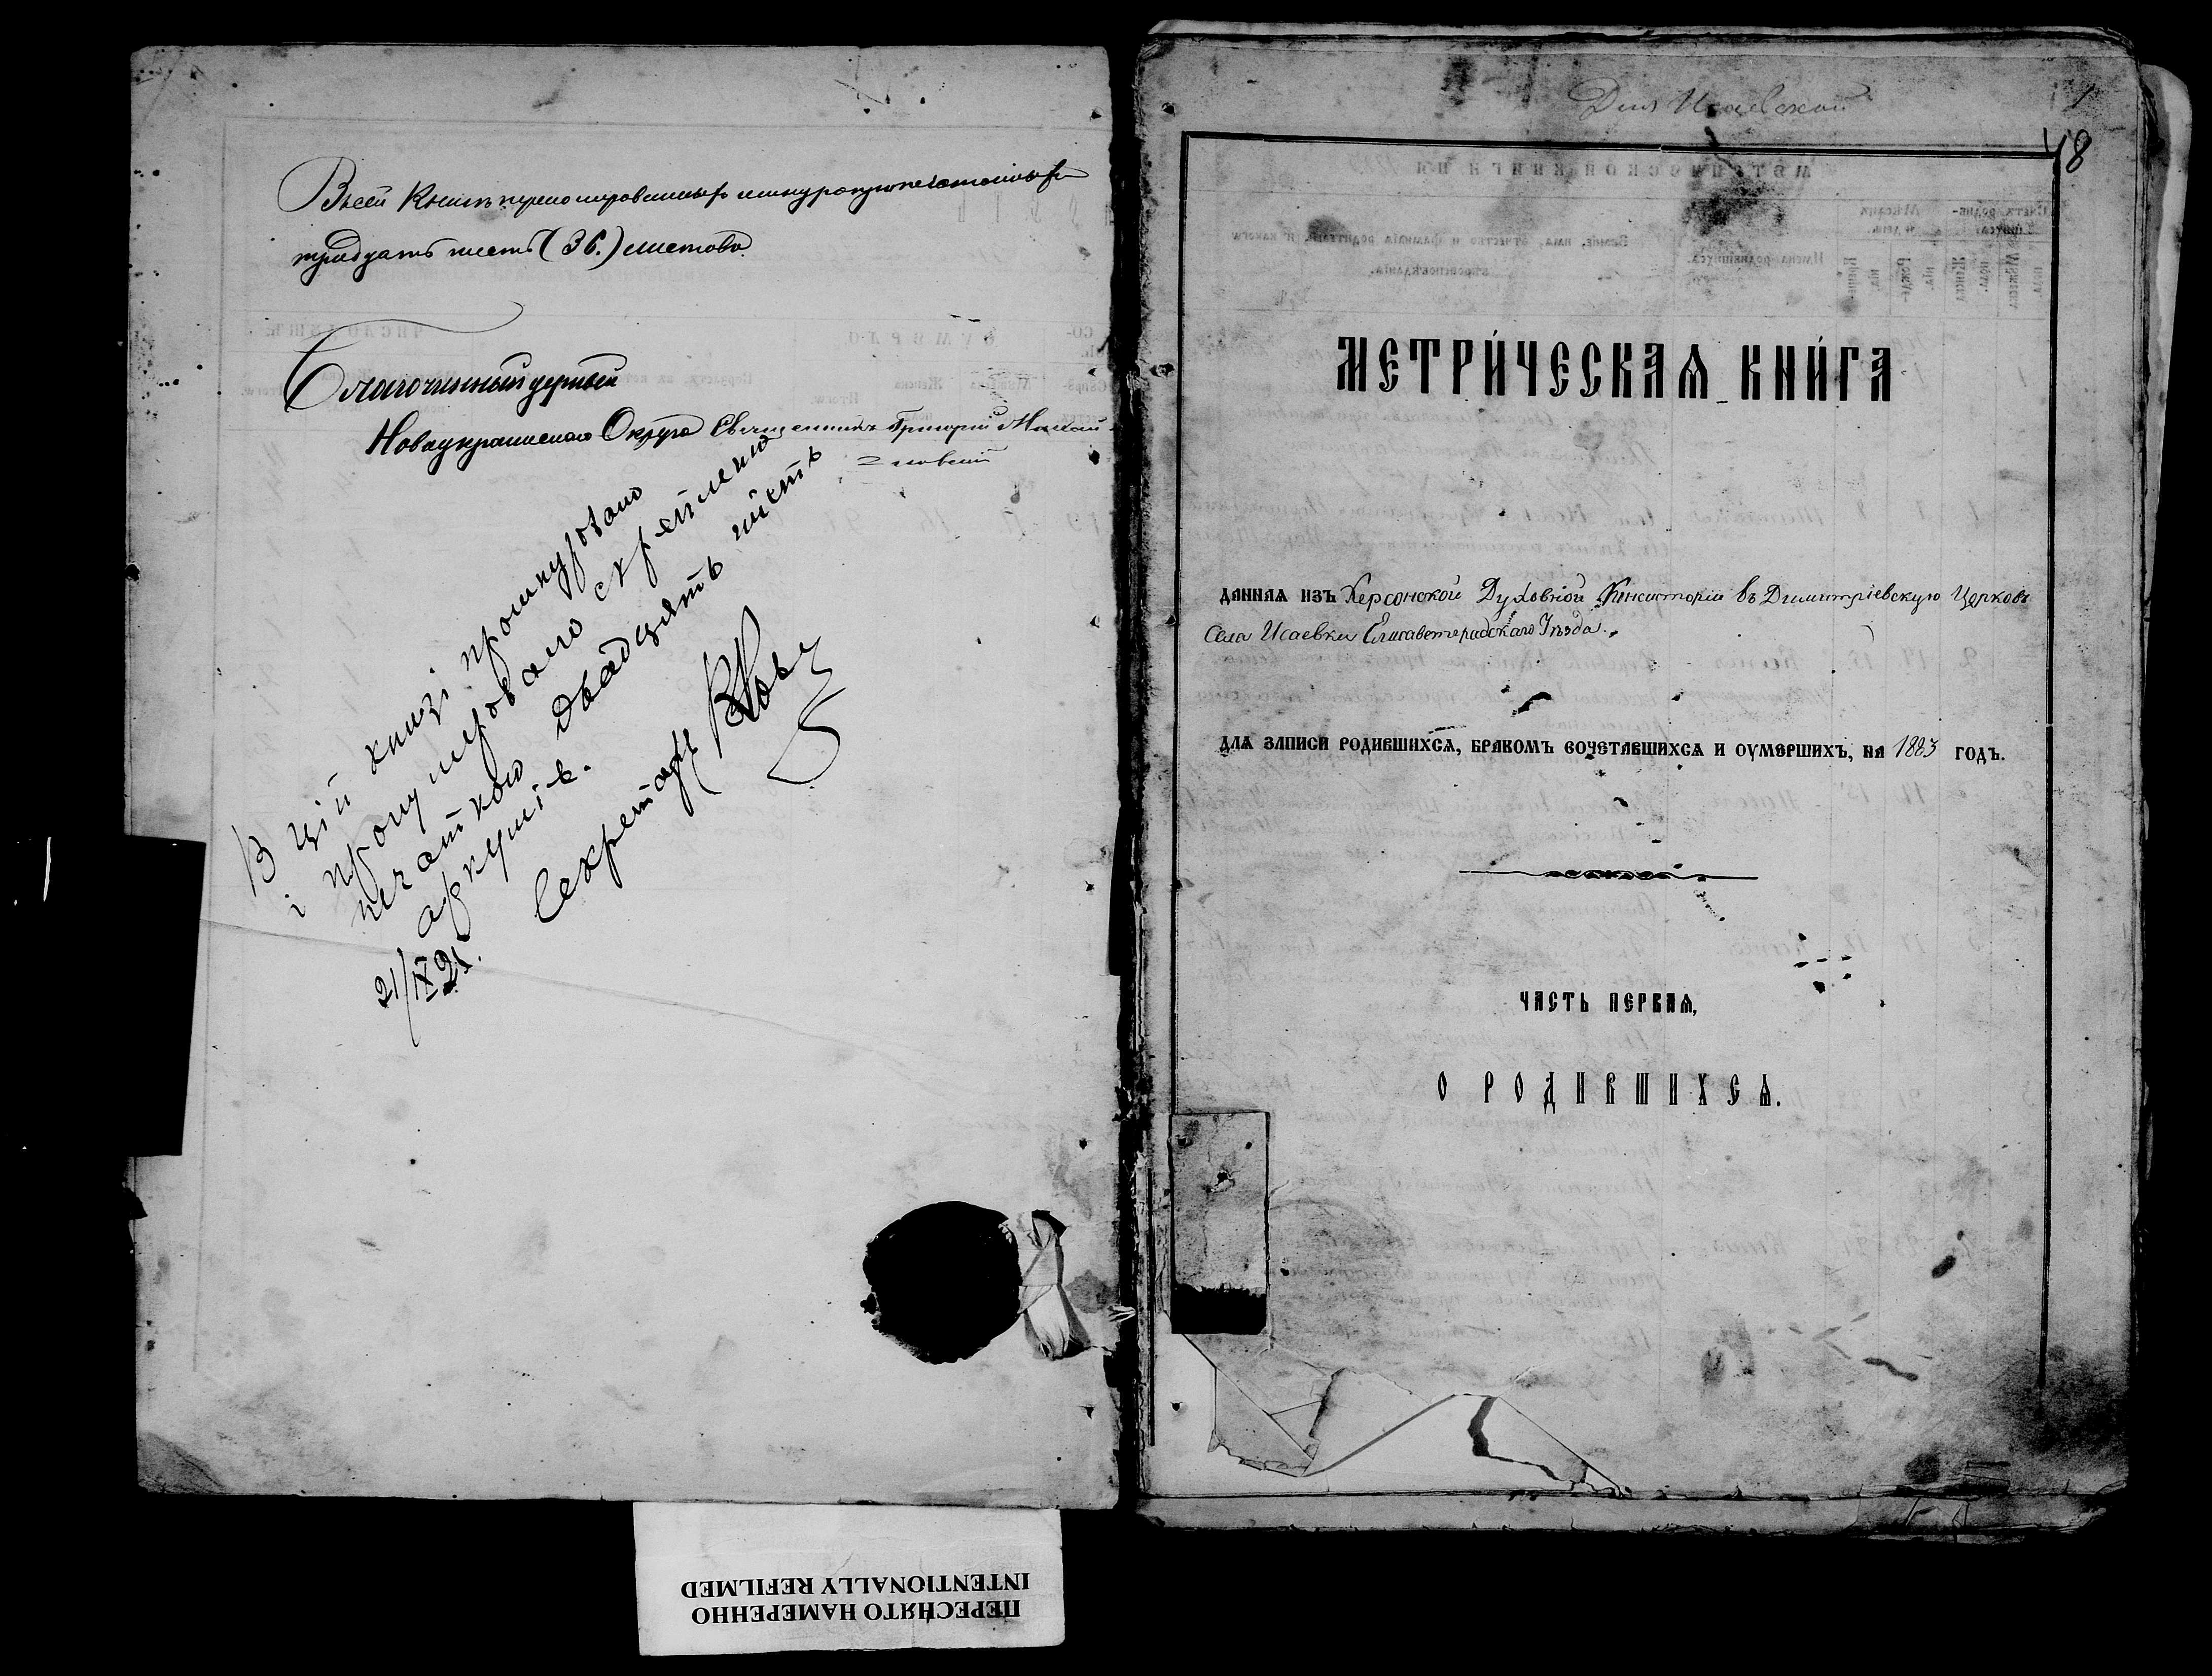 Въсей Книгѣ
тридцать шесть (36.) листовъ
Благочинный церквей
Новоукраинскаго Округа Священникъ Григорій
В цій книзі прошнуровано
і пронумеровано скреплено
печаткою двадцять шість
аркушів.
Секретарь
21/IX 21.
Для Исаевской
1
48
МЕТРИ́ЧЕСКАѦ КНИ́ГА
ДАННАѦ ИЗЪ Херсонской Духовной Консисторіи въ Димитріевскую Церковь
Села Исаевки Елисаветградскаго Уѣзда.
ДЛѦ ЗАПИСИ РОДИВШИХСѦ, БРАКОМЪ СОЧЕТАВШИХСѦ И ОУМЕРШИХЪ, НА 1883 ГОДЪ.
ЧАСТЬ ПЕРВАѦ,
О РОДИВШИХСѦ.
ПЕРЕСНЯТО НАМЕРЕННО
INTENTIONALLY REFILMED